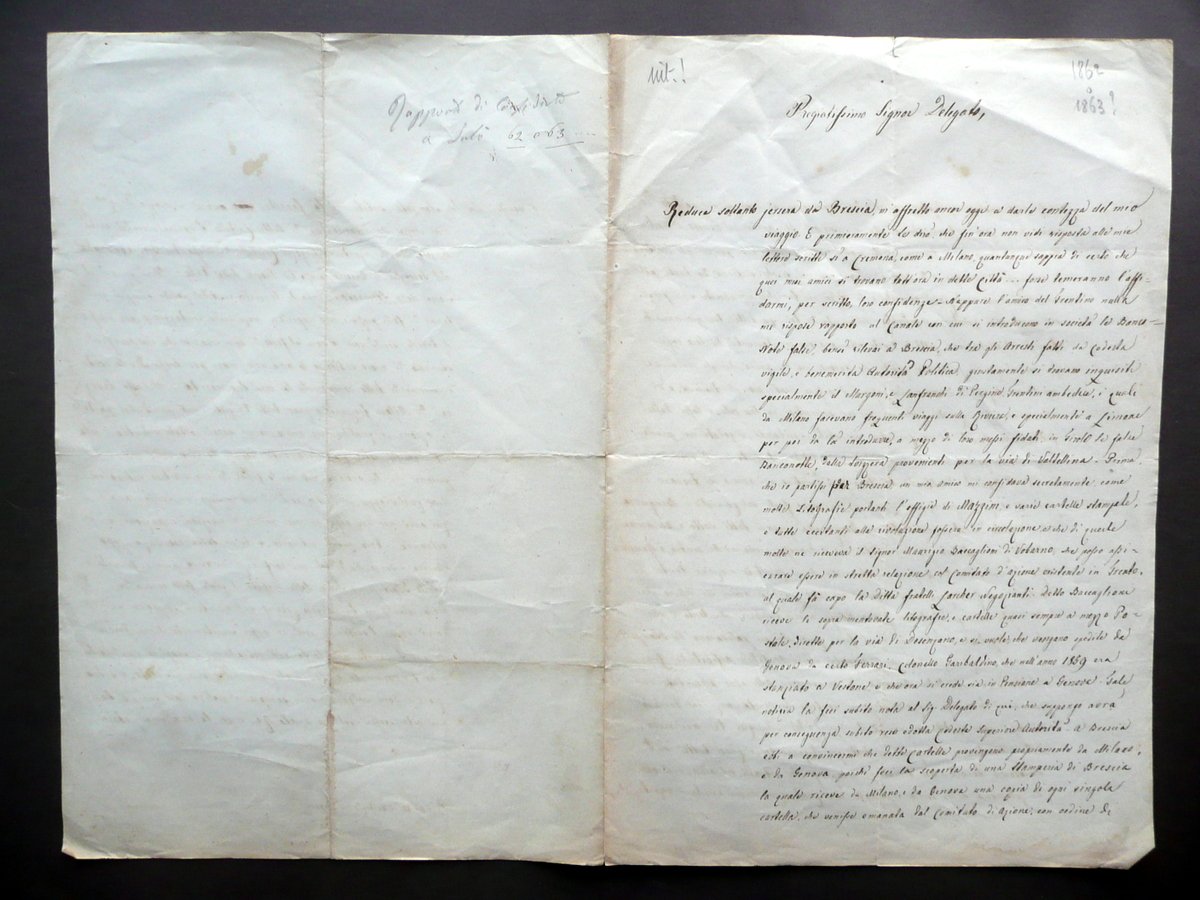 Rapporto di
a Salò 62 o 63
int.!
1862
o
1863?
Pregiatissimo Signor Delegato,
Reduce soltanto jersera da Brescia, m'affretto ancor oggi a darle contezza del mio
viaggio. E primieramente Le dirò, che fin'ora non vidi risposta alle mie
lettere scritte sì a Cremona, come a Milano, quantunque sappia di certo che
quei miei amici si trovano tutt'ora in dette Città ... forse temeranno l'affi-
darmi, per scritto, loro confidenze = Neppure l'amico del Trentino nulla
mi rispose rapporto al Canale con cui si introducono in società le Banco=
Note false, bensì rilevai a Brescia, che tra gli Arresti fatti da codesta
vigile, e benemerita Autorità Politica, giustamente si trovano inquisiti
specialmente il Marzoni, e Lanfranchi di Pergine, Trentini ambedue, i quali
da Milano facevano frequenti viaggi sulla Riviera, e specialmente a Limone
per poi da là introdurre, a mezzo di loro messi fidati, in Tirolo le false
Banconotte, dalla Svizzera provenienti per la via di Valtellina. - Prima
che io partissi per Brescia un mio amico mi confidava secretamente, come
molte Litografie portanti l'effigie di Mazzini, e varie cartelle stampate,
e tutte eccitanti alla rivoluzione fossero in circolazione, e che di queste
molte ne riceveva il Signor Maurizio Baccaglioni di Vobarno, che posso assi-
curare essere in stretta relazione col Comitato d'azione esistente in Trento,
al quale fà capo la ditta fratelli Negozianti. Detto Baccaglione
riceve le sopra mentovate litografie, e cartelle quasi sempre a mezzo Po-
stale, dirette per la via di Desenzano, e si vuole, che vengano spedite da
Genova da certo Ferrari, Colonello Garibaldino, che nell'anno 1859 era
stanziato a Vestone, e che ora si crede sia in Pensione a Genova. Tale
notizia la feci subito nota al Sig. Delegato di qui, che suppongo avrà
per conseguenza subito reso edotta codesta Superiore Autorità. A Brescia
ebbi a convincermi che dette Cartelle provengono propriamente da Milano,
e da Genova poichè feci la scoperta di una Stamperia di Brescia
la quale riceve da Milano, e da Genova una copia di ogni singola
cartella, che venisse emanata dal Comitato di Azione, con ordine di